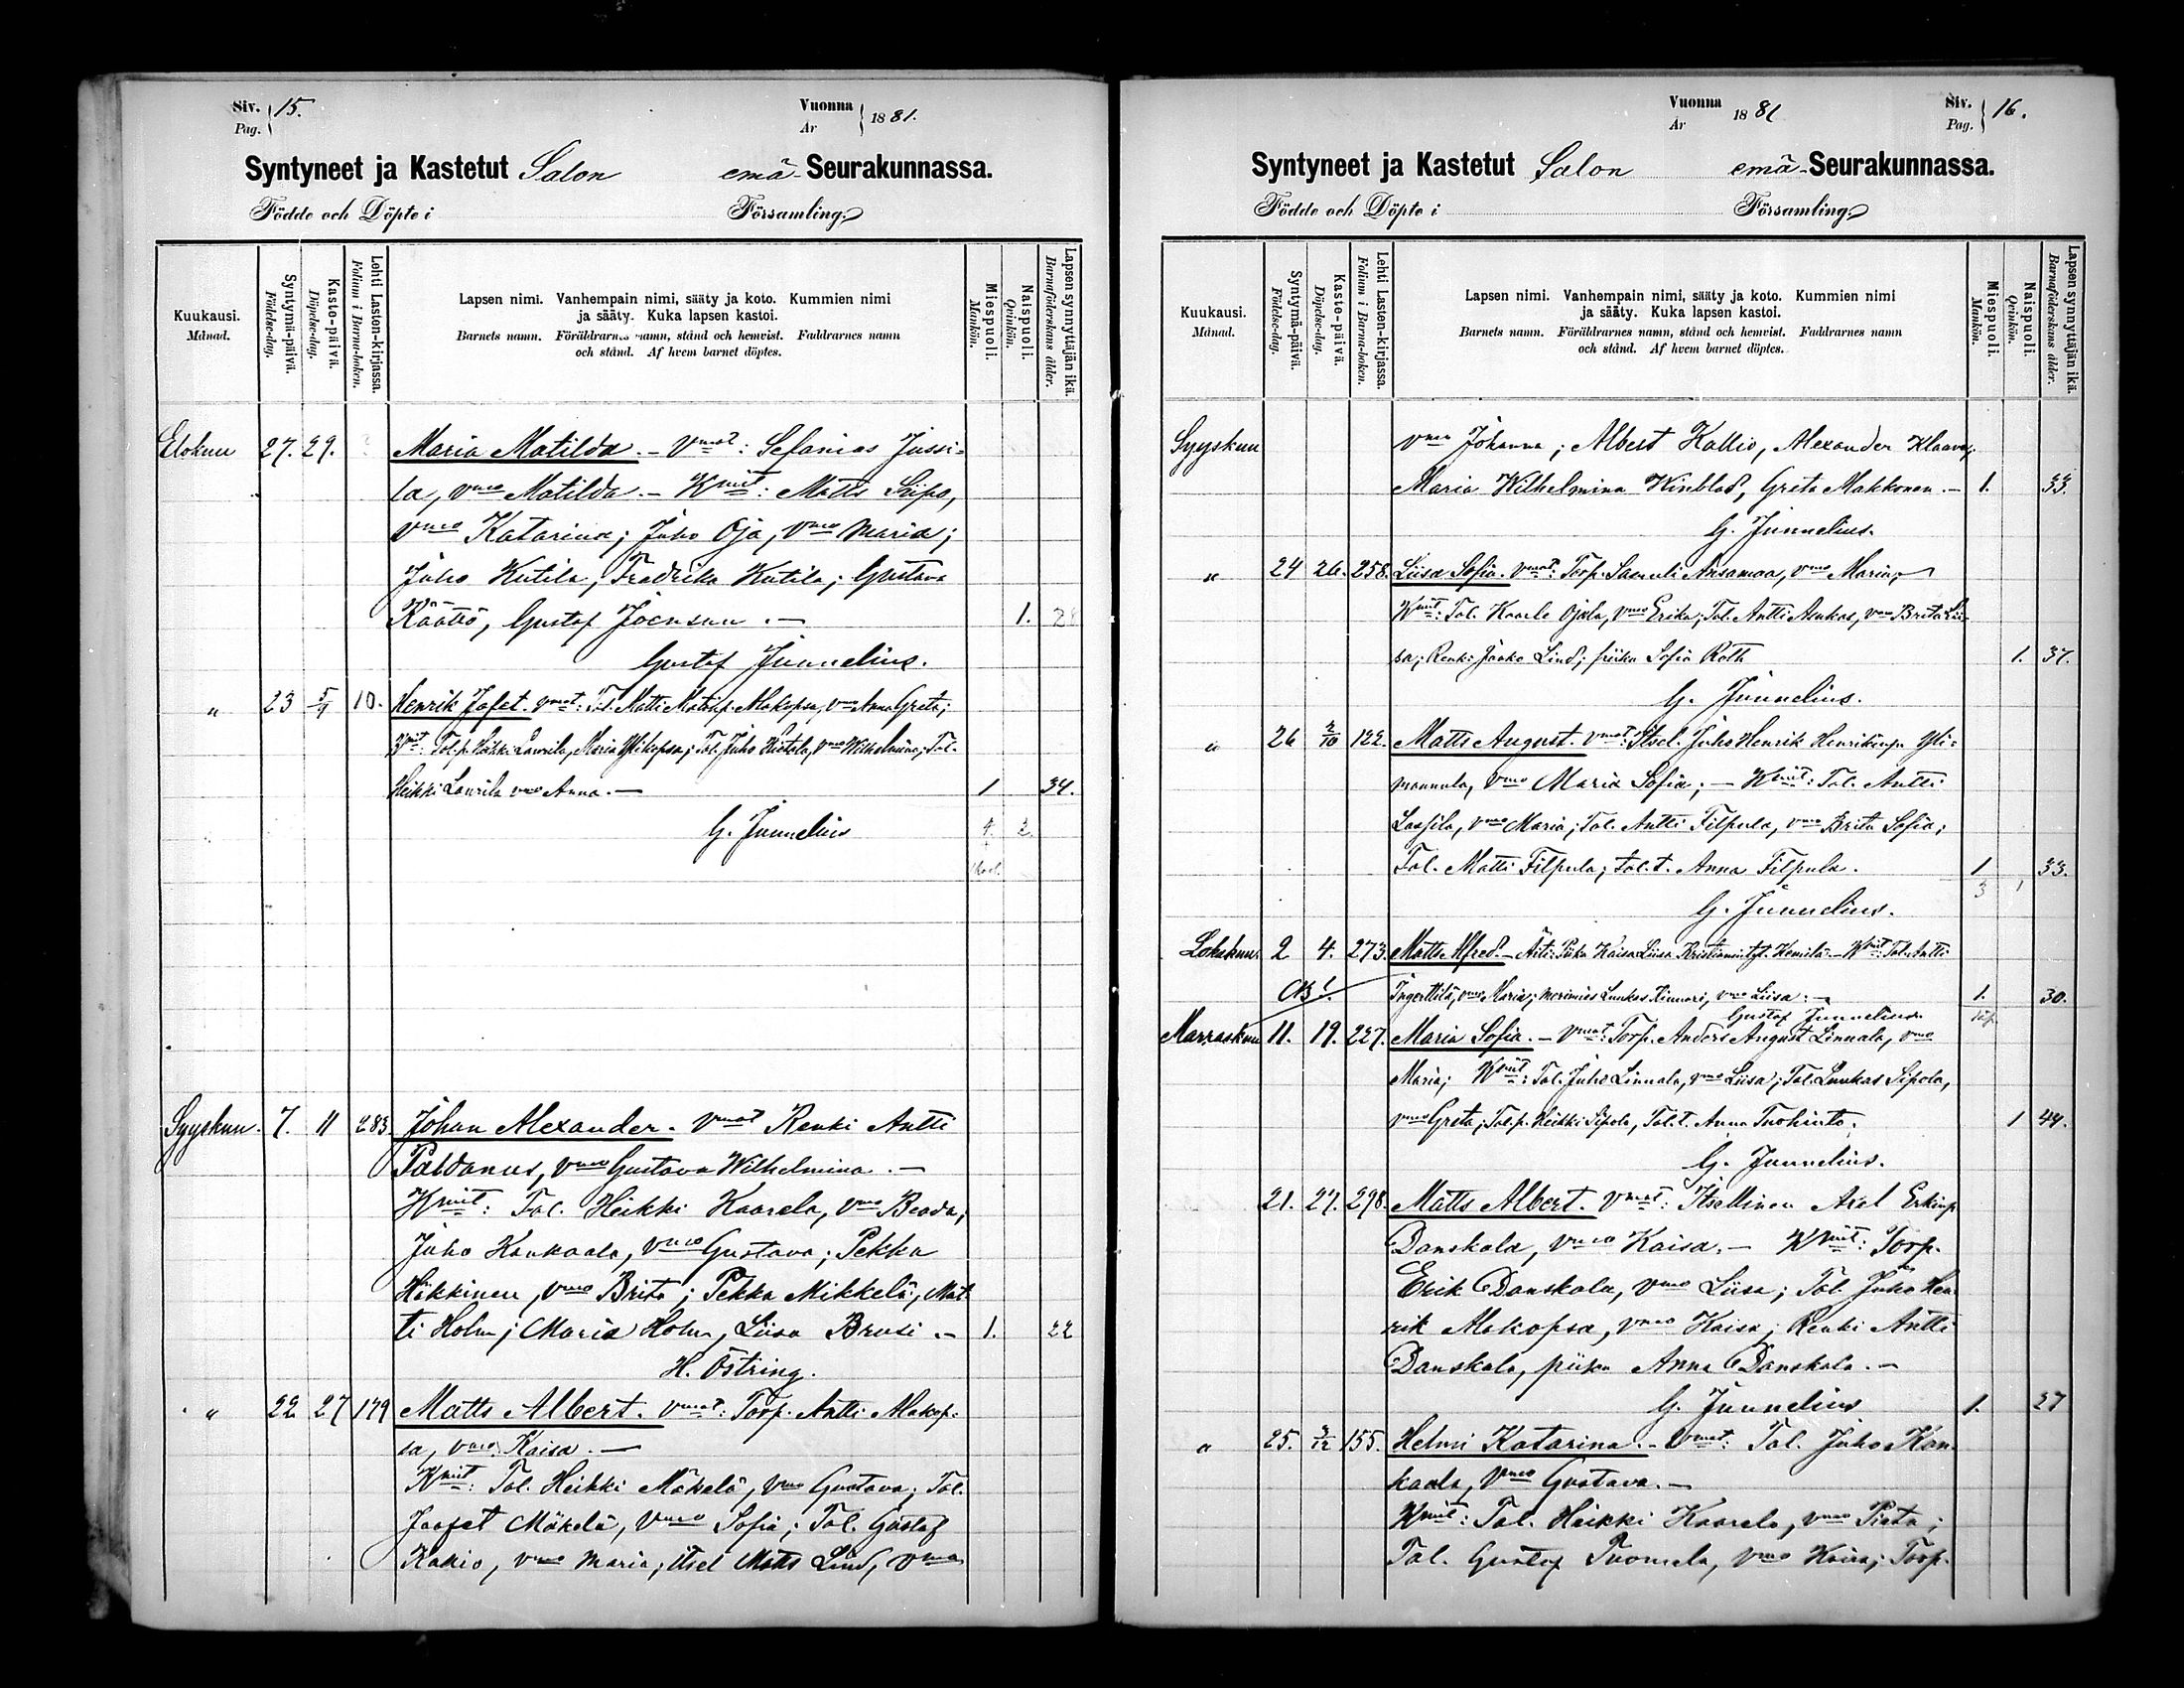 Siv. Pag. 15.
Vuonna År 1881.
Syntyneet ja Kastetut Salon emä-Seurakunnassa.
Födde och Döpte i Församling.
Kuukausi. Månad.
Syntymä-päivä. Födelse-dag.
Kasto-päivä. Döpelse-dag.
Lehti Lasten-kirjassa. Folium i Barna-boken.
Lapsen nimi. Vanhempain nimi, sääty ja koto. Kummien nimi
ja sääty. Kuka lapsen kastoi.
Barnets namn. Föräldrarnes namn, stånd och hemvist. Faddrarnes namn
och stånd. Af hvem barnet döptes.
Miespuoli. Mankön.
Naispuoli. Qvinkön.
Lapsen synnyttäjän ikä. Barnaföderskans ålder.
Elokuu 27. 29. Maria Matilda. - Vmat: Sefanias Jussi-
la, vmo Matilda. - Kmit: Matts Siipo,
vmo Katarina; Juho Oja, vmo Maria;
Juho Kutila, Fredrika Kutila; Gustava
Käättö, Gustaf Joensuu. - 1. 28
Gustaf Junnelius.
" 23 5/9 10. Henrik Jafet. Vmat: Tal. Matti Matinp. Alakopsa, vmo Anna Greta;
Kmit: Tal.p. Heikki Laurila, Maria Ylikopsa; Tal. Juho Hietala, vmo Wilhelmina; Tal.
Heikki Laurila vmo Anna. - 1 34.
G. Junnelius 4. 2.
Syyskuu. 7. 11 283 Johan Alexander. Vmat Renki Antti
Paldanus, vmo Gustava Wilhelmina. -
Kmit: Tal. Heikki Kaarela, vmo Beada;
Juho Kankaala, vmo Gustava; Pekka
Häkkinen, vmo Brita; Pekka Mikkelä, Mat-
ti Holm; Maria Holm, Liisa Brusi. - 1. 22
H. Östring.
" 22 27 179 Matts Albert. Vmat: Torp. Antti Alakop-
sa, vmo Kaisa. -
Kmit: Tal. Heikki Mäkelä, vmo Gustava; Tal.
Jaafet Mäkelä, vmo Sofia; Tal. Gustaf
Kallio, vmo Maria; itsel Matts Lind, vmo
Vuonna År 1881
Siv. Pag. 16.
Syntyneet ja Kastetut Salon emä-Seurakunnassa.
Födde och Döpte i Församling.
Kuukausi. Månad.
Syntymä-päivä. Födelse-dag.
Kasto-päivä. Döpelse-dag.
Lehti Lasten-kirjassa. Folium i Barna-boken.
Lapsen nimi. Vanhempain nimi, sääty ja koto. Kummien nimi
ja sääty. Kuka lapsen kastoi.
Barnets namn. Föräldrarnes namn, stånd och hemvist. Faddrarnes namn
och stånd. Af hvem barnet döptes.
Miespuoli. Mankön.
Naispuoli. Qvinkön.
Lapsen synnyttäjän ikä. Barnaföderskans ålder.
Syyskuu vmo Johanna; Albert Kallio, Alexander
Maria Wilhelmina Kinblad, Greta Makkonen. - 1. 33.
G. Junnelius.
" 24 26. 258. Liisa Sofia. Vmat: Torp. Samuli Ansamaa, vmo Maria; -
Kmit: Tal. Kaarle Ojala, vmo Erika; Tal. Antti Asukas, vmo Brita Lii-
sa; Renki Jaako Lind; piika Sofia Roth 1. 37.
G. Junnelius.
" 26 2/10 122. Matts August. Vmat: Itsel. Juho Henrik Henrikinp. Yli-
mannula, vmo Maria Sofia; - Kmit: Tal. Antti
Laasila, vmo Maria; Tal. Antti Filpula, vmo Brita Sofia;
Tal. Matti Filpula; tal.t. Anna Filpula. 1 33.
G. Junnelius. 3 1
Lokakuu. 2 4. 273. Matts Alfred. - Äiti: Piika Kaisa Liisa Kristianint. Hemilä - Kmit: Tal. Antti
NB! Ingerttilä, vmo Maria; merimies Luukas Kinnari, vmo Liisa: - 1. 30.
Gustaf Junnelius
Marraskuu 11. 19. 227. Maria Sofia. - Vmat: Torp. Anders August Linnala, vmo
Maria; Kmit: Tal. Juho Linnala, vmo Liisa; Tal. Luukas Sipola,
vmo Greta; Tal.p. Heikki Sipola, Tal.t. Anna Tuohinto. 1 44.
G. Junnelius.
21. 27. 298. Matts Albert. Vmat: Itsellinen Axel Erkinp.
Danskala, vmo Kaisa. - Kmit: Torp.
Erik Danskala, vmo Liisa; Tal. Juho Hen-
rik Alakopsa, vmo Kaisa; Renki Antti
Danskala, piika Anna Danskala. -
G. Junnelius 1. 27
" 25. 3/12 155. Helmi Katarina. - Vmat: Tal. Juho Kan-
kaala, vmo Gustava. -
Kmit: Tal. Heikki Kaarela, vmo Piata;
Tal. Gustaf Tuomela, vmo Kaisa; Torp.